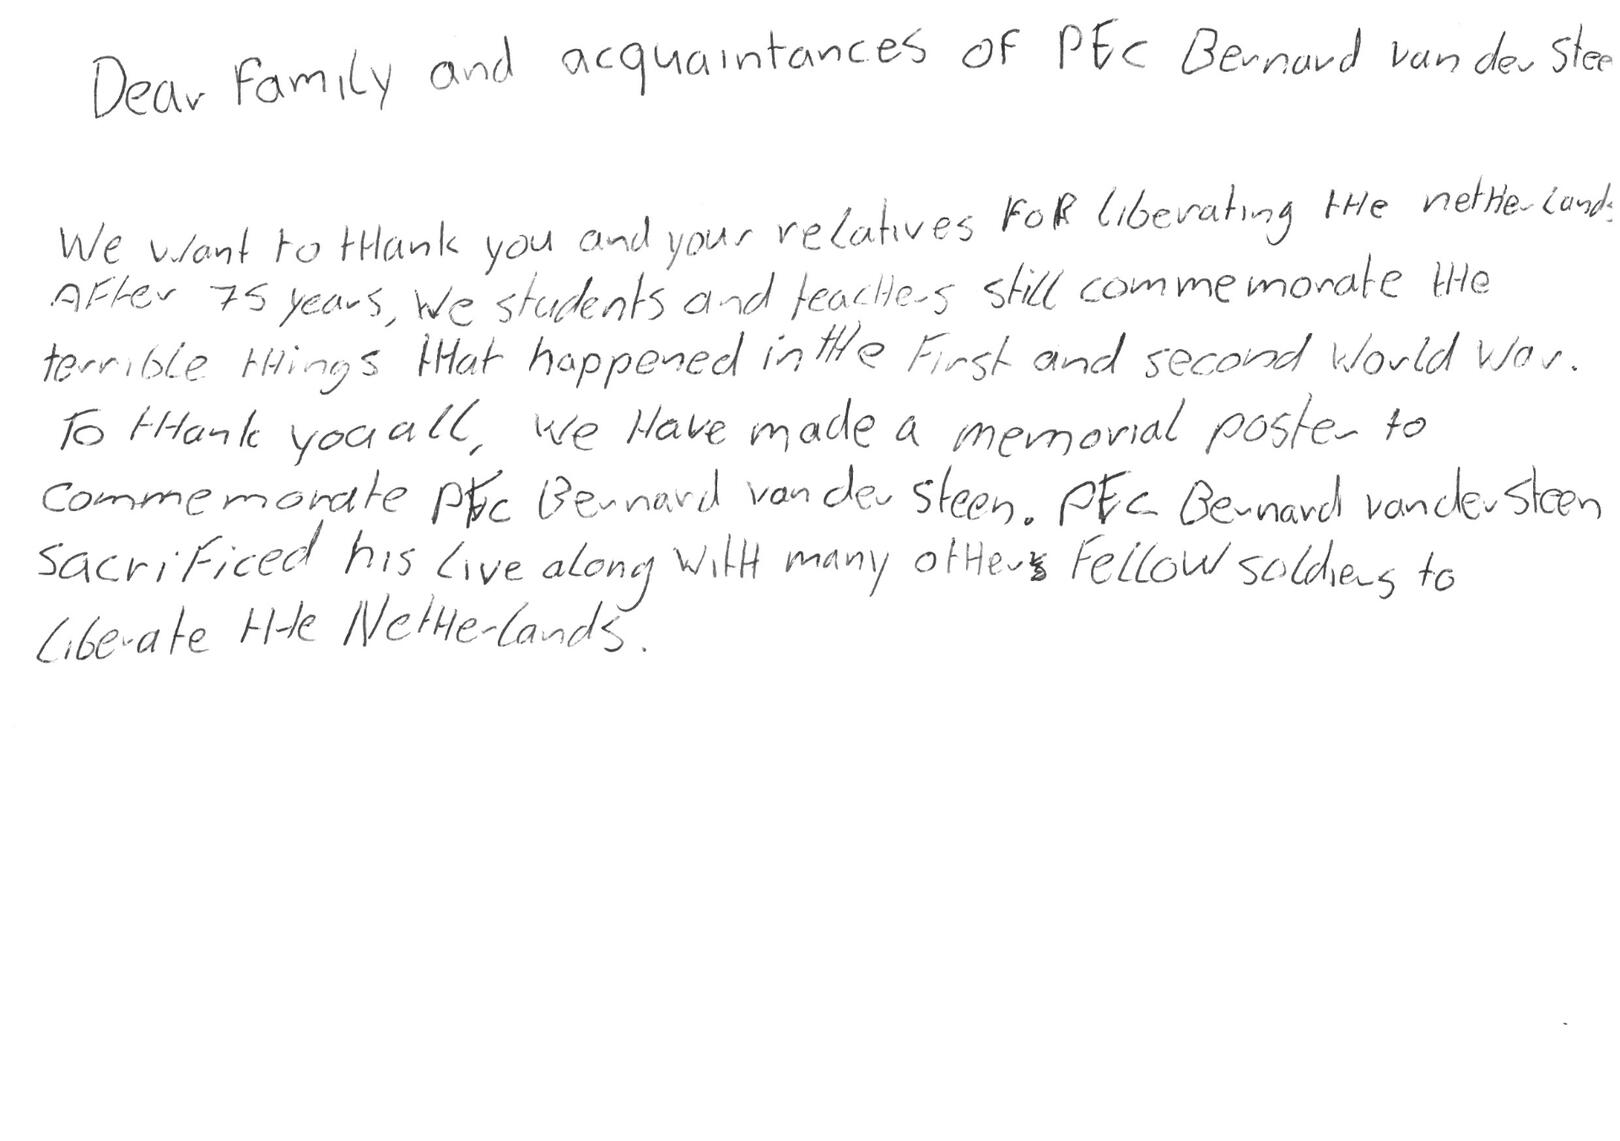 Dear Family and acquaintances of PFC Bernard van der Stee
We want to thank you and your relatives FOR liberating the netherlands
After 75 years, We students and teachers still commemorate the
terrible things that happened in the First and second World War.
To thank you all, we Have made a memorial poster to
commemorate PFC Bernard van der Steen. PFC Bernard van der Steen
sacrificed his live along with many other fellow soldiers to
liberate the Netherlands.